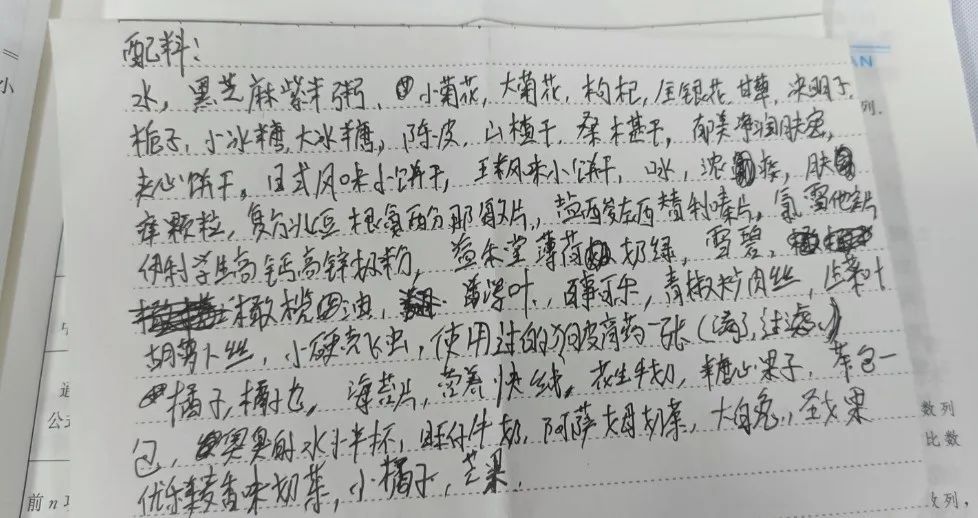 配料:
水, 黑芝麻紫米粥, 小菊花, 大菊花, 枸杞, 金银花, 甘草, 决明子,
栀子, 小冰糖, 大冰糖, 陈皮, 山楂干, 桑椹干, 郁美净润肤霜,
夹心饼干, 日式风味小饼干, 玉米风味小饼干, 口水, 浓 肤
痒颗粒, 复方北豆根氨酚那敏片, 盐酸左西替利嗪片, 氯雷他定片
伊利学生高钙高锌奶粉, 益禾堂薄荷奶绿, 雪碧,
橄榄油, 薄荷叶, 百事可乐, 青椒炒肉丝, 生菜叶
胡萝卜丝, 小硬壳飞虫, 使用过的狗皮膏药一张(滴了,过滤)
橘子, 橘子皮, 海苔片, 营养快线, 花生牛奶, 糖心果子, 茶包一
包, 臭臭的水小半杯, 旺仔牛奶, 阿萨姆奶茶, 大白兔, 圣女果
优乐美麦香味奶茶, 小橘子, 芒果,
AN
小
列.
公
数列
比数
前n
列,